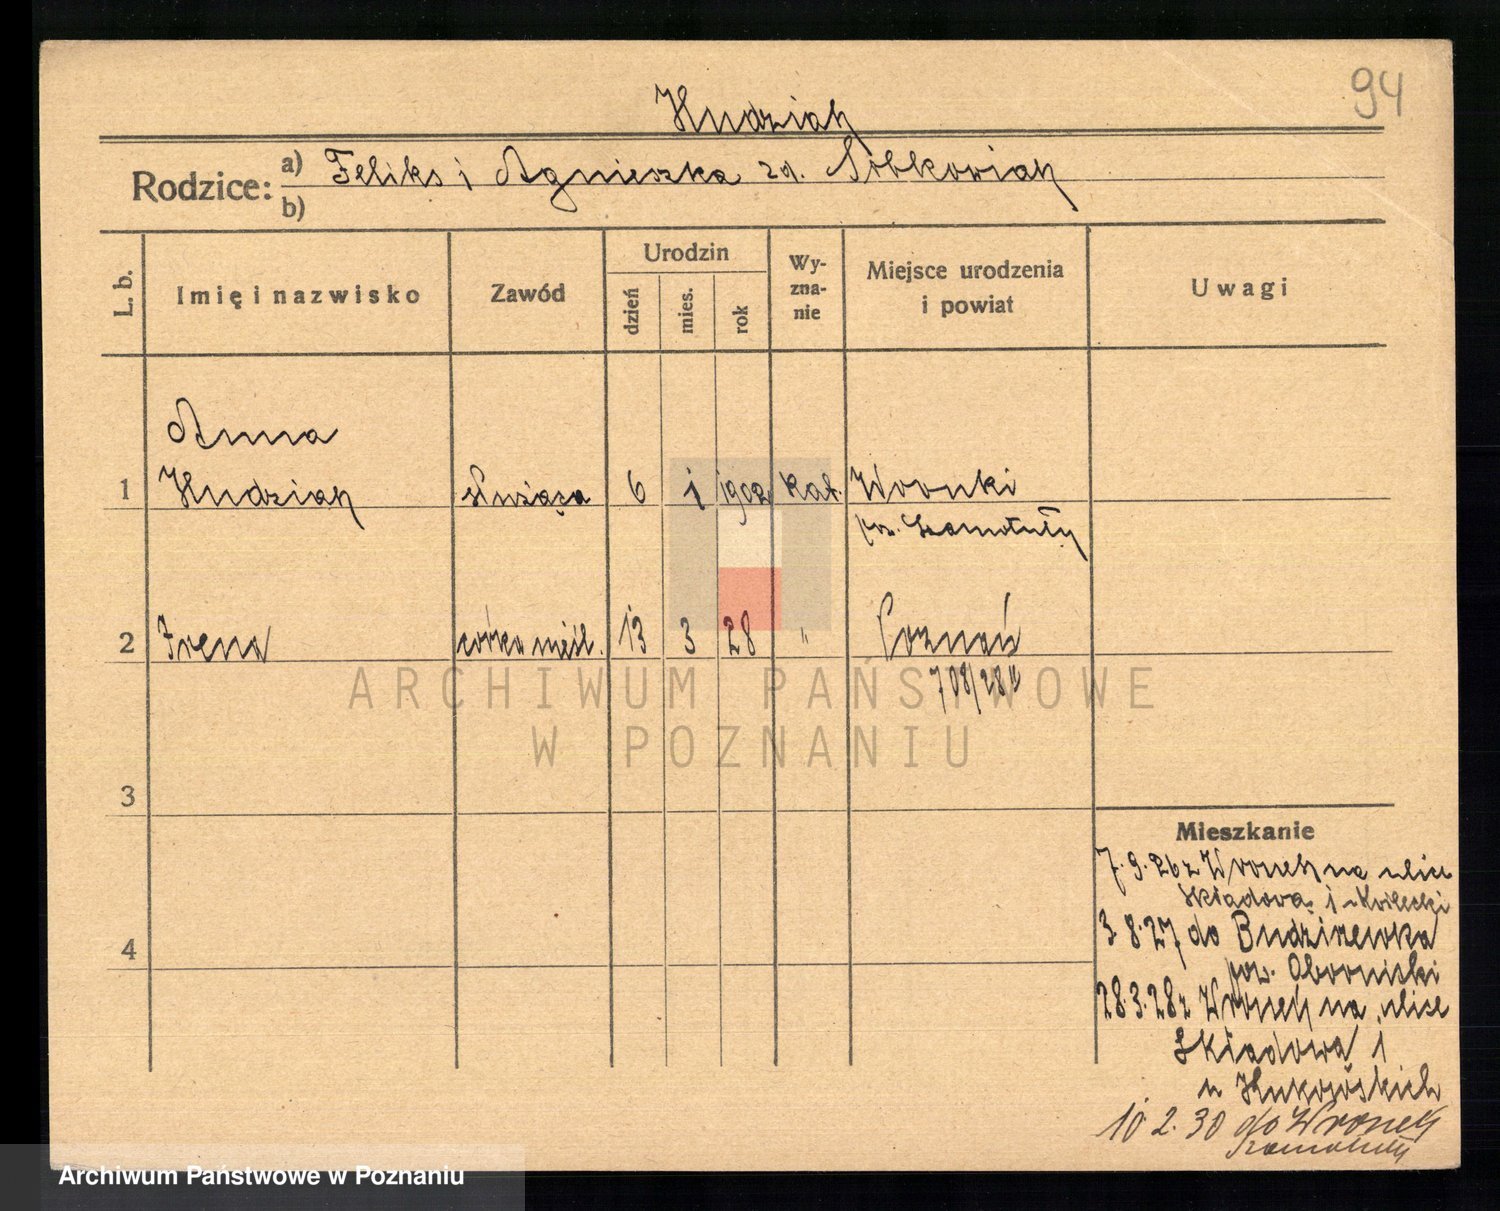 94
Hudziak
Rodzice: a) Feliks i Agnieszka zd. Sobkowiak
b)
L. b.
Imię i nazwisko
Zawód
Urodzin
dzień
mies.
rok
Wy-
zna-
nie
Miejsce urodzenia
i powiat
Uwagi
Anna
1 Hudziak służąca 6 1 1902 kat. Wronki
pow. Szamotuły
2 Irena córka nieśl. 13 3 28 " Poznań
708/28
3
4
Mieszkanie
7.9.26 z Wronek na ulice
Składową 1
3 8.27 do Budziszewka
pow. Obornicki
28.3.28 z Wronek na ulice
Składową 1
u
10.2.30 do Wronek
Szamotuły
ARCHIWUM PAŃSTWOWE
W POZNANIU
Archiwum Państwowe w Poznaniu